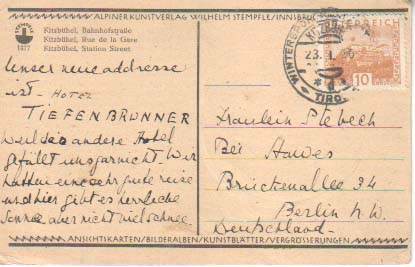 ALPINER KUNSTVERLAG WILHELM STEMPFLE / INNSBRUCK
1477
Kitzbühel, Bahnhofstraße
Kitzbühel, Rue de la Gare
Kitzbühel, Station Street
Unser neue addresse
ist HOTEL
TIEFENBRUNNER
weil das andere Hotel
gefült uns gar nicht. Wir
hatten eine sehr gute reise
und hier gibt es herrliche
Sonne aber nicht viel schnee.
WINTERSPORT
23.
TIROL
ÖSTERREICH
10
Fräulein
Bei
Brückenallee 34
Berlin N.W.
Deutschland
ANSICHTSKARTEN/BILDERALBEN/KUNSTBLÄTTER/VERGRÖSSERUNGEN